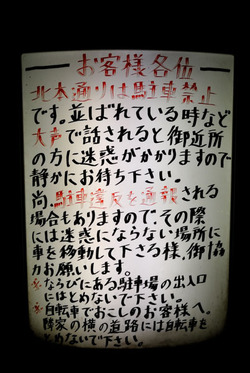 お客様各位
北本通りは駐車禁止
です。並ばれている時など
大声で話されると御近所
の方に迷惑がかかりますので
静かにお待ち下さい。
尚、駐車違反を通報される
場合もありますので、その際
には迷惑にならない場所に
車を移動して下さる様、御協
力お願いします。
※ならびにある駐車場の出入口
にはとめないで下さい。
※自転車でおこしのお客様へ。
隣家の横の道路には自転車を
とめないで下さい。